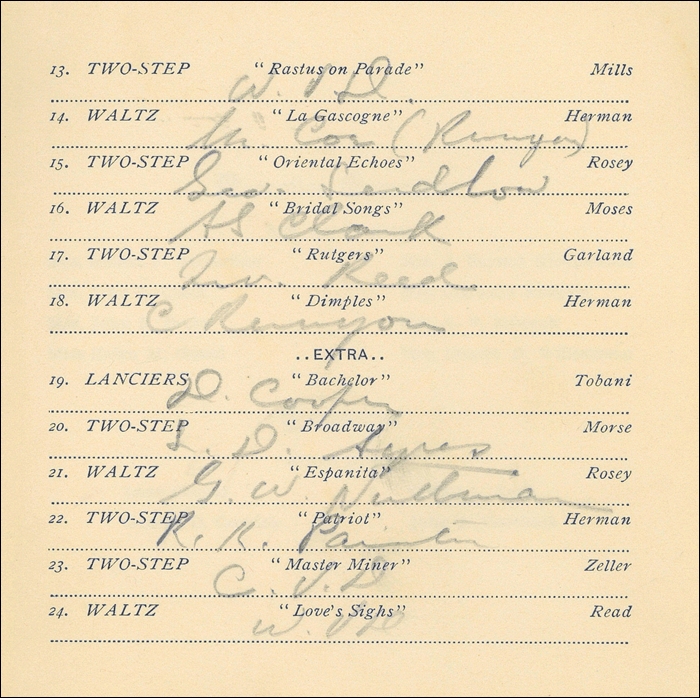 13. TWO-STEP “Rastus on Parade” Mills
W. V D.
14. WALTZ “La Gascogne” Herman
Cox (Runyon)
15. TWO-STEP “Oriental Echoes” Rosey
Geo. Ludlow
16. WALTZ “Bridal Songs” Moses
AS Clark
17. TWO-STEP “Rutgers” Garland
Jno. Reed
18. WALTZ “Dimples” Herman
C Runyon
..EXTRA..
19. LANCIERS “Bachelor” Tobani
D. Cooper
20. TWO-STEP “Broadway” Morse
D. Ayres
21. WALTZ “Espanita” Rosey
G. W. Nuttman
22. TWO-STEP “Patriot” Herman
R. K. Painter
23. TWO-STEP “Master Miner” Zeller
C. V. D
24. WALTZ “Love's Sighs” Read
W. V D